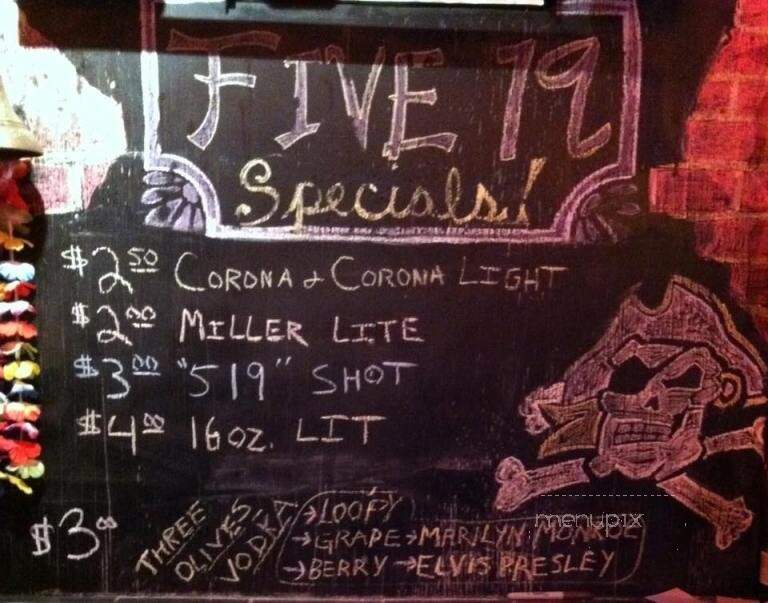 FIVE 19
Specials!
$2.50 CORONA & CORONA LIGHT
$2.00 MILLER LITE
$3.00 "519" SHOT
$4.00 16 oz. LIT
$3.00 THREE OLIVES VODKA
→ LOOPY
→ GRAPE → MARILYN MONROE
→ BERRY → ELVIS PRESLEY
menupix